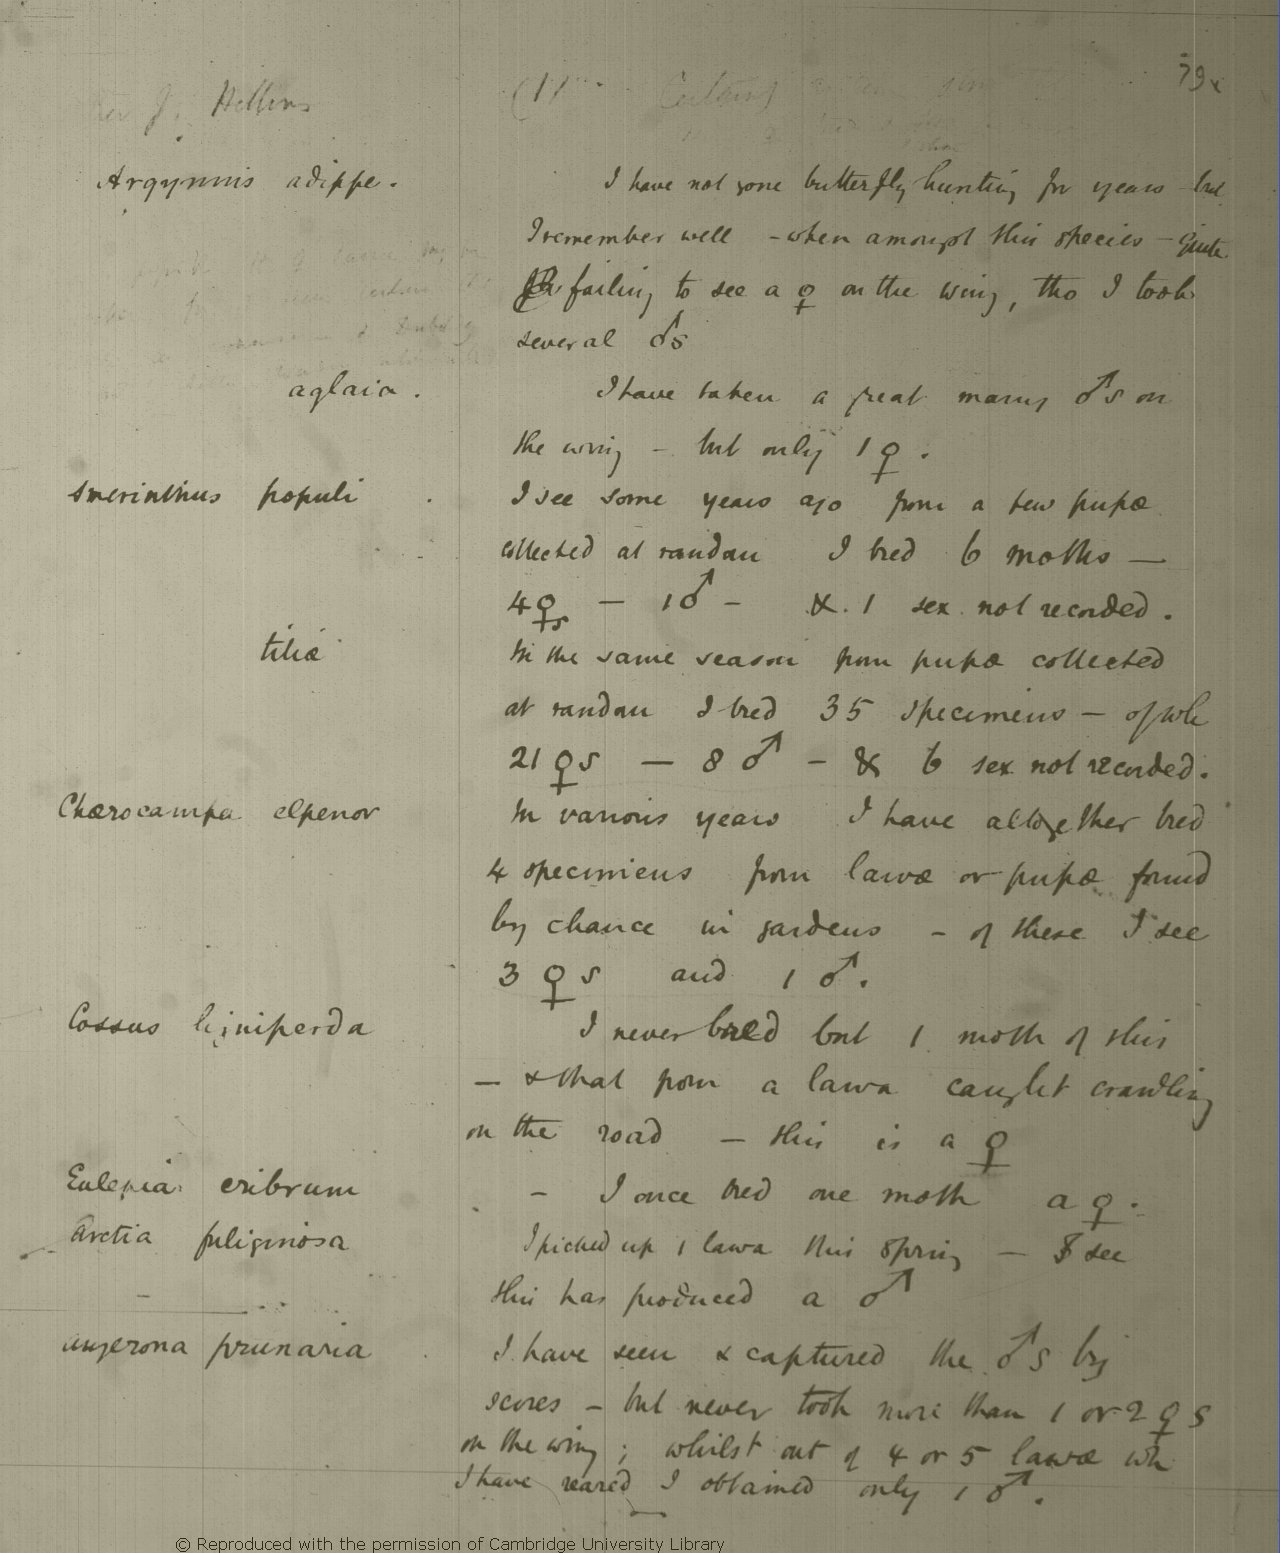 J. Hellins
(1)
79
Argynnis adippe. I have not gone butterfly hunting for years but
I remember well - when amongst this species - quite
failing to see a ♀ on the wing, tho I took
several ♂s
aglaia. I have taken a great many ♂s on
the wing - but only 1 ♀.
Smerinthus populi. I see some years ago from a few pupæ
collected at random I bred 6 moths —
4 ♀s — 1 ♂ - & 1 sex not recorded.
tiliæ In the same season from pupæ collected
at random I bred 35 specimens - of wh
21 ♀s — 8 ♂ - & 6 sex not recorded.
Chærocampa elpenor In various years I have altogether bred
4 specimens from larvæ or pupæ found
by chance in gardens - of these I see
3 ♀s and 1 ♂.
Cossus ligniperda I never bred but 1 moth of this
- & that from a larva caught crawling
on the road - this is a ♀
Eulepia cribrum - I once bred one moth a ♀.
Arctia fuliginosa I picked up 1 larva this spring — I see
this has produced a ♂
Angerona prunaria I have seen & captured the ♂s by
scores - but never took more than 1 or 2 ♀s
on the wing; whilst out of 4 or 5 larvæ wh
I have reared I obtained only 1 ♂.
© Reproduced with the permission of Cambridge University Library